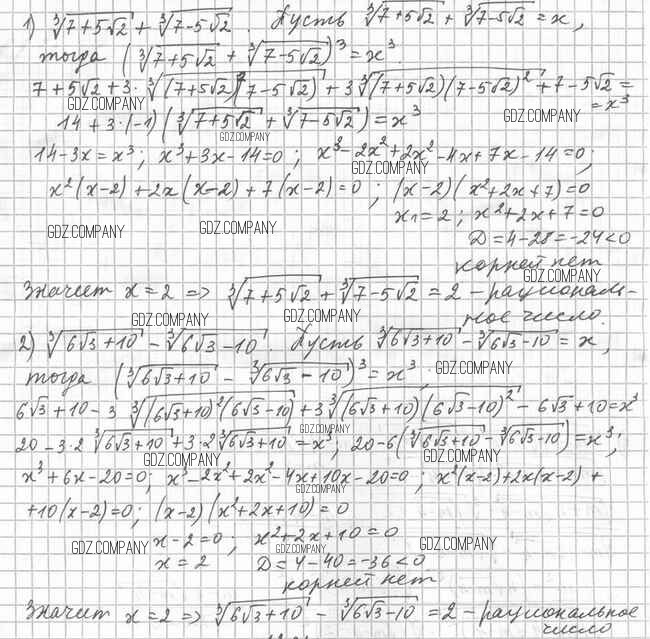 1) ∛(7+5√2) + ∛(7-5√2). Пусть ∛(7+5√2) + ∛(7-5√2) = x,
тогда (∛(7+5√2) + ∛(7-5√2))³ = x³.
7+5√2+3·∛((7+5√2)²(7-5√2)) + 3∛((7+5√2)(7-5√2)²) + 7-5√2 =
GDZ.COMPANY GDZ.COMPANY = x³
14+3·(-1)(∛(7+5√2) + ∛(7-5√2)) = x³
GDZ.COMPANY
14-3x=x³; x³+3x-14=0; x³-2x²+2x²-4x+7x-14=0;
GDZ.COMPANY
x²(x-2)+2x(x-2)+7(x-2)=0; (x-2)(x²+2x+7)=0
x₁=2; x²+2x+7=0
GDZ.COMPANY GDZ.COMPANY
D=4-28=-24<0
корней нет
GDZ.COMPANY
Значит x=2 => ∛(7+5√2) + ∛(7-5√2) = 2 - рациональ-
ное число
GDZ.COMPANY GDZ.COMPANY
2) ∛(6√3+10) - ∛(6√3-10). Пусть ∛(6√3+10) - ∛(6√3-10) = x,
тогда (∛(6√3+10) - ∛(6√3-10))³ = x³;
GDZ.COMPANY
6√3+10-3∛((6√3+10)²(6√3-10)) + 3∛((6√3+10)(6√3-10)²) - 6√3+10=x³
GDZ.COMPANY
20-3·2∛(6√3+10)+3·2∛(6√3+10)=x³; 20-6(∛(6√3+10) - ∛(6√3-10))=x³;
GDZ.COMPANY GDZ.COMPANY
x³+6x-20=0; x³-2x²+2x²-4x+10x-20=0; x²(x-2)+2x(x-2)+
GDZ.COMPANY
+10(x-2)=0; (x-2)(x²+2x+10)=0
x-2=0; x²+2x+10=0
GDZ.COMPANY GDZ.COMPANY GDZ.COMPANY
x=2 D=4-40=-36<0
корней нет
Значит x=2 => ∛(6√3+10) - ∛(6√3-10) = 2 - рациональное
число